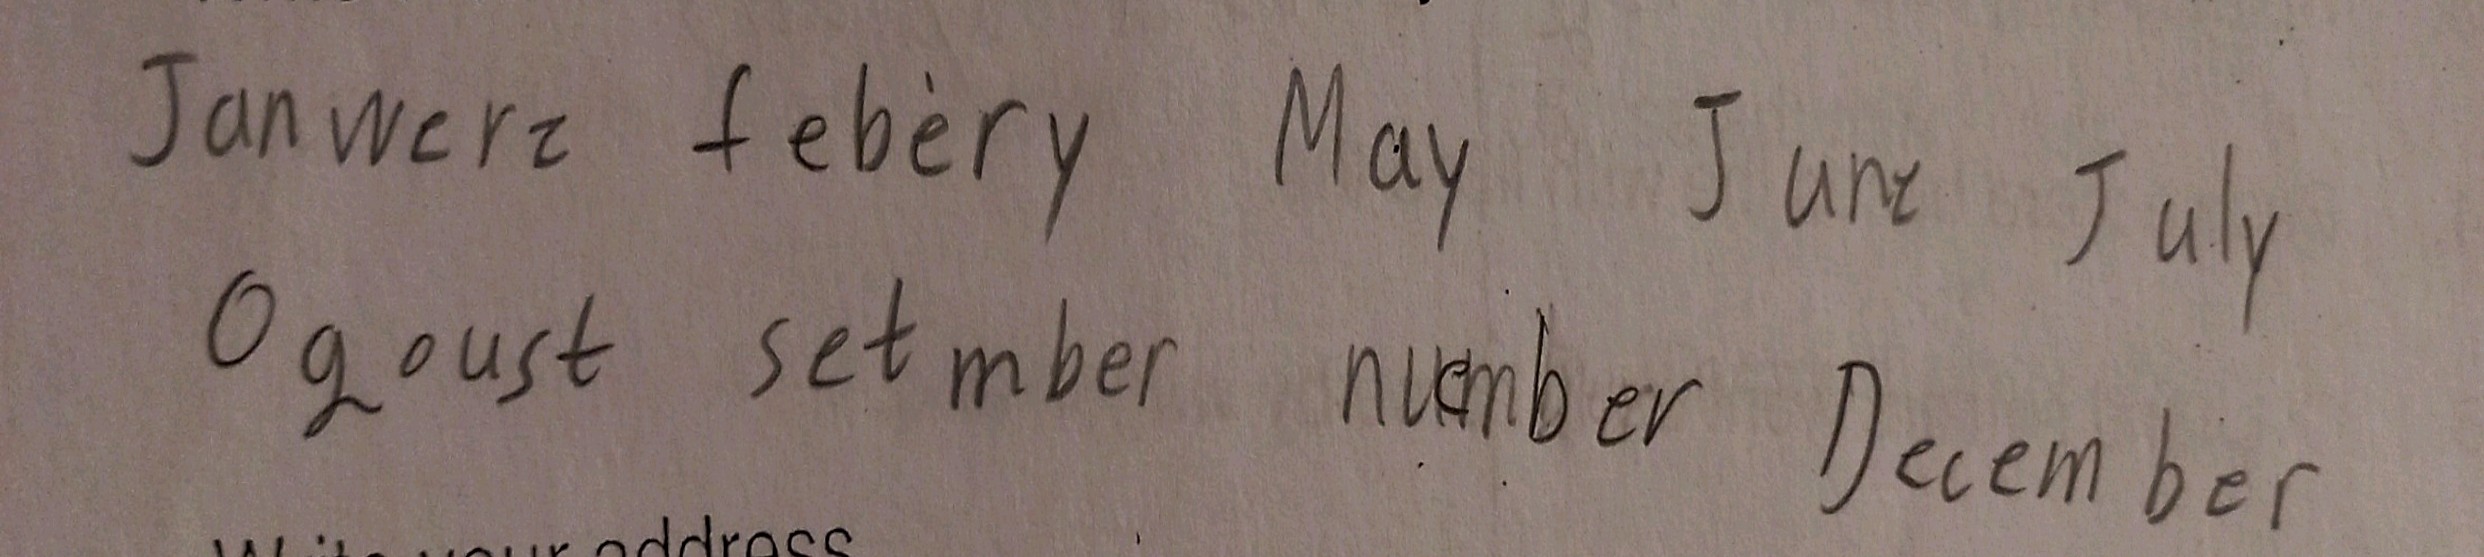 Janwere febery May June July
Ogoust setmber number December
Write your address